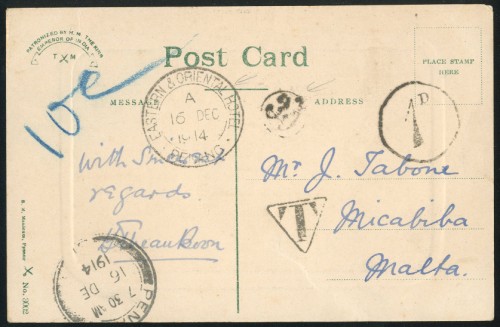 PATRONIZED BY H.M. THE KING
EMPEROR OF INDIA
T X M
10c
Post Card
PLACE STAMP
HERE
MESSAGE
ADDRESS
EASTERN & ORIENTAL HOTEL
A
16 DEC
1914
PENANG
1D
T
With
regards.
Mr J. Tabone
Micabiba
Malta.
PEN
7 30 AM
16 DE
1914
No. 3002